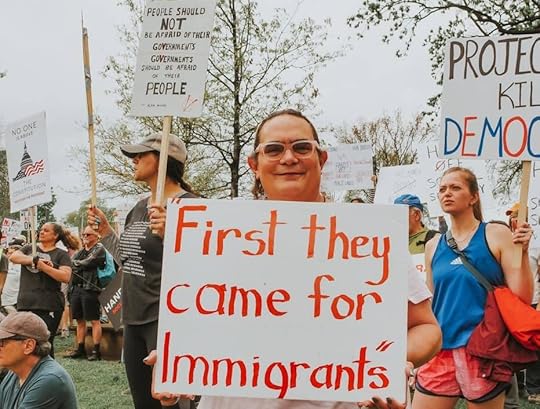 PEOPLE SHOULD
NOT
BE AFRAID OF THEIR
GOVERNMENTS
GOVERNMENTS
SHOULD BE AFRAID
OF THEIR
PEOPLE
NO ONE
IS ABOVE
CONSTITUTION
"First they
came for
Immigrants"
PROJE
KIL
DEMOC